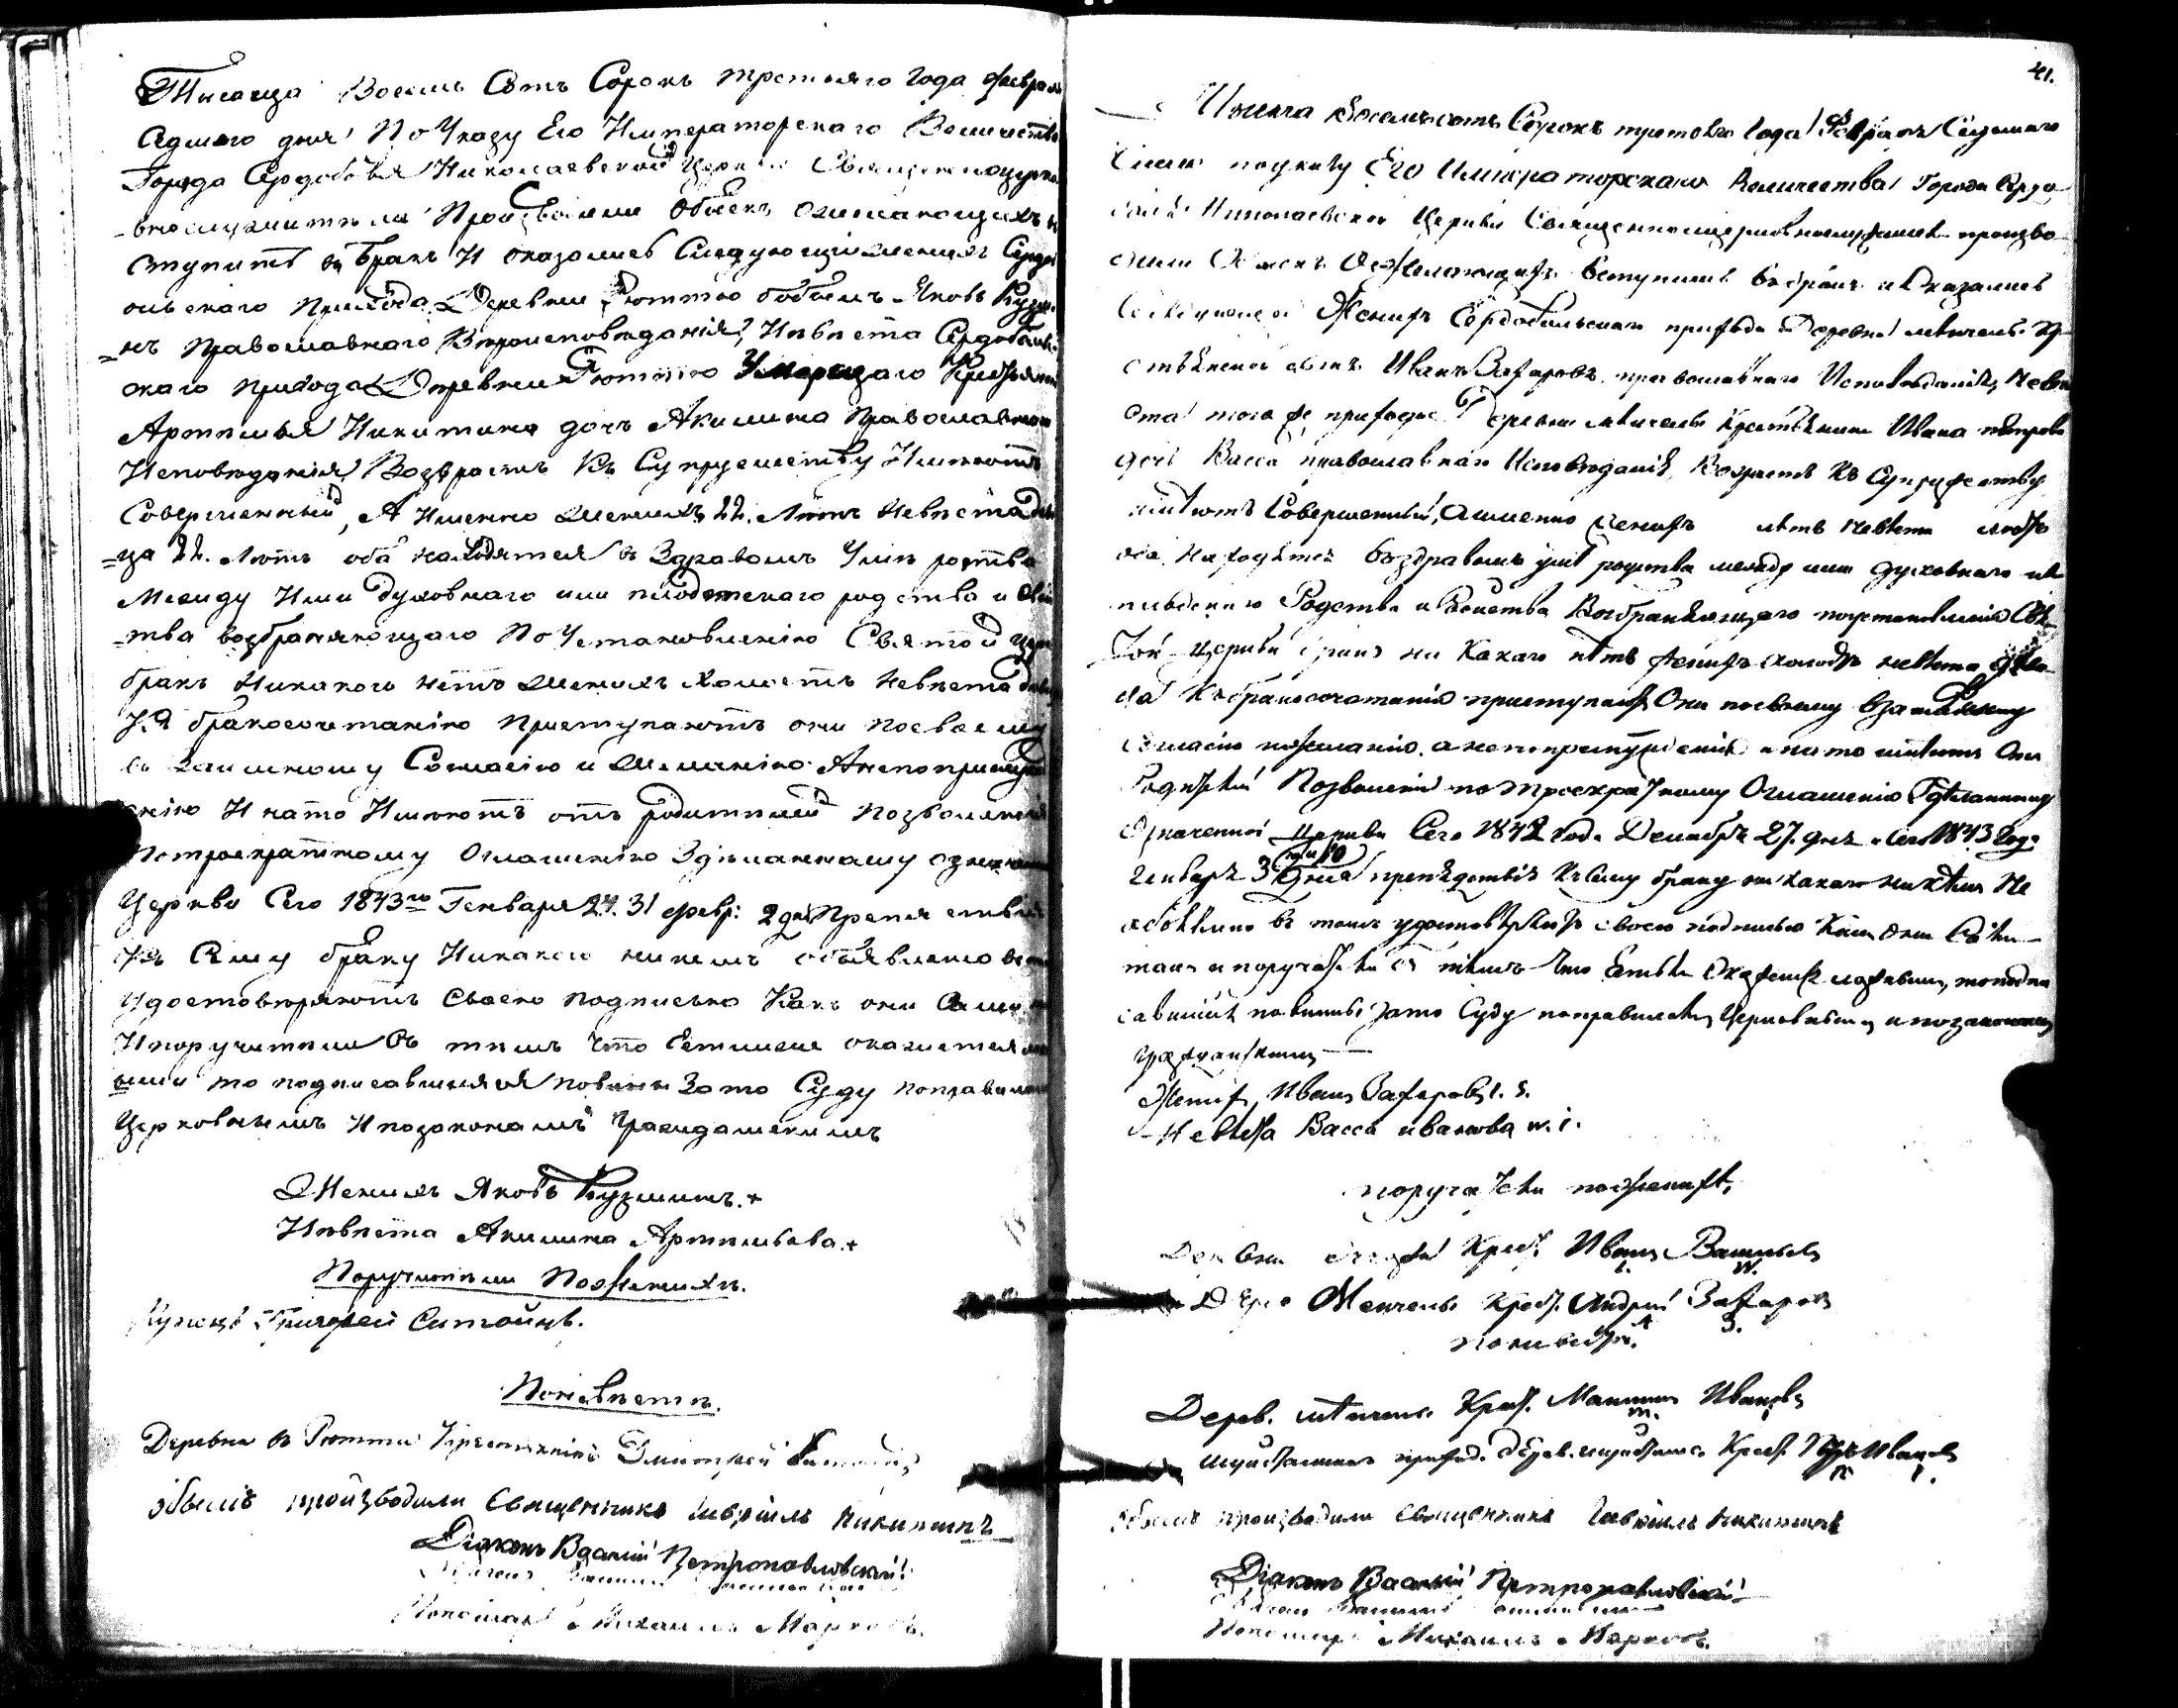 Тысяща Восемь Сотъ Сорокъ третьяго года февраля
Седмаго дня По Указу Его Императорскаго Величества
Города Сердоболя Николаевской Церкви Священноцерко
-внослужители Производили Обыскъ о желающихъ в
ступить въ бракъ И оказалось Следующее женихъ Сердоб
ольскаго Прихода Деревни Рютти бобыль Яковъ Кузми
=нъ православнаго Вероисповѣданія, Невѣста Сердоболь
скаго прихода Деревни Рютти Умершаго Крестьянина
Артемья Никитина дочь Акилина Православнаго
Исповѣданія Возрастъ Къ Супружеству Имѣютъ
Совершенный, А Именно женихъ 22. Лѣтъ Невѣста дѣви
=ца 22. Лѣтъ оба находятся въ Здравомъ Умѣ
Между Ими духовнаго или плотскаго родства и свой
=тва возбраняющаго По Установленію Святой церкви
бракъ Никакого нѣтъ женихъ Холостъ Невѣста девица
Къ бракосочетанію Приступаютъ они по своему
взаимному Согласію и Желанію А не по принуж
денію И на то Имѣютъ отъ родителей позволеніе
По троекратному Оглашенію Здѣланному означенной
Церкви Сего 1843го Генваря 24. 31 февр: 2 дня Препятствія
Къ Сему браку Никакого никемъ объявлено
удостовѣряютъ Своею подписью Какъ они Сами
И поручители въ темъ что Естьли окажется
то подписавшияся повинны За то Суду по правиламъ
Церковнымъ И по законамъ Гражданскимъ
Женихъ Яковъ Кузминъ. +
Невѣста Акилина Артемьева. +
Поручители По Женихѣ.
Купецъ Григорей Ситойнъ.
По невѣстѣ.
Деревни Рютти Крестьянинъ Дмитрей
обыскъ производили Священникъ Гавріилъ Никитинъ
Діаконъ Василій Петропавловскій
Пономарь Михаилъ Марковъ.
41.
Тысяча Восемьсотъ Сорокъ третьяго года Февраля Седьмаго
дня по указу Его Императорскаго Величества Города Сердо
Николаевской Церкви Священноцерковнослужители произво
дили Обыскъ О желающихъ вступить въ бракъ и Оказалось
следующее Женихъ Сердобольскаго прихода Деревни мѣнчель Кр
Иванъ Захаровъ православнаго Исповѣданія, Невѣ
ста того же прихода Деревни мѣнчель Крестьянина Ивана Петрова
дочь Васса православнаго Исповѣданія, Возрастъ Къ Супружеству
имѣютъ Совершенный, а именно женихъ лѣтъ невѣста лѣтъ
оба находятся въ здравомъ умѣ родства между ими духовнаго или
плотскаго Родства и Свойства Возбраняющаго по установленію Свя
той Церкви бракъ ни Какаго нѣтъ женихъ холостъ невѣста девица
Къ бракосочетанію приступаютъ Они по своему взаимному
согласію и желанію, а не по принужденію и на то имѣютъ Они
Родителей Позволеніе по троекратному Оглашенію Здѣланному
Означенной Церкви Сего 1842 года Декабря 27. дня и Сего 1843 года
Генваря 3 и 10 Дня препятствія Къ сему браку ни какаго никѣмъ Не
объявлено въ томъ удостовѣряютъ своею подписью Какъ Они Сами
такъ и поручатели съ тѣмъ Что Естьли Окажется ложнымъ, то подпи
савшійся повинны за то Суду по правиламъ Церковнымъ и по законамъ
Гражданскимъ
Женихъ Иванъ Захаровъ. I. З.
Невѣста Васса иванова w. i.
поручатели по женихѣ,
Крест. Иванъ Васильевъ
Дере Мѣнчель Крест. Андрей Захаровъ
по невѣстѣ
Дерев. мѣнчель Крест. Мат Ивановъ
приход. дерев. Крест. Петръ Ивановъ
Обыскъ производили Священникъ Гавріилъ Никитинъ
Діаконъ Василій Петропавловскій
Пономарь Михаилъ Марковъ.